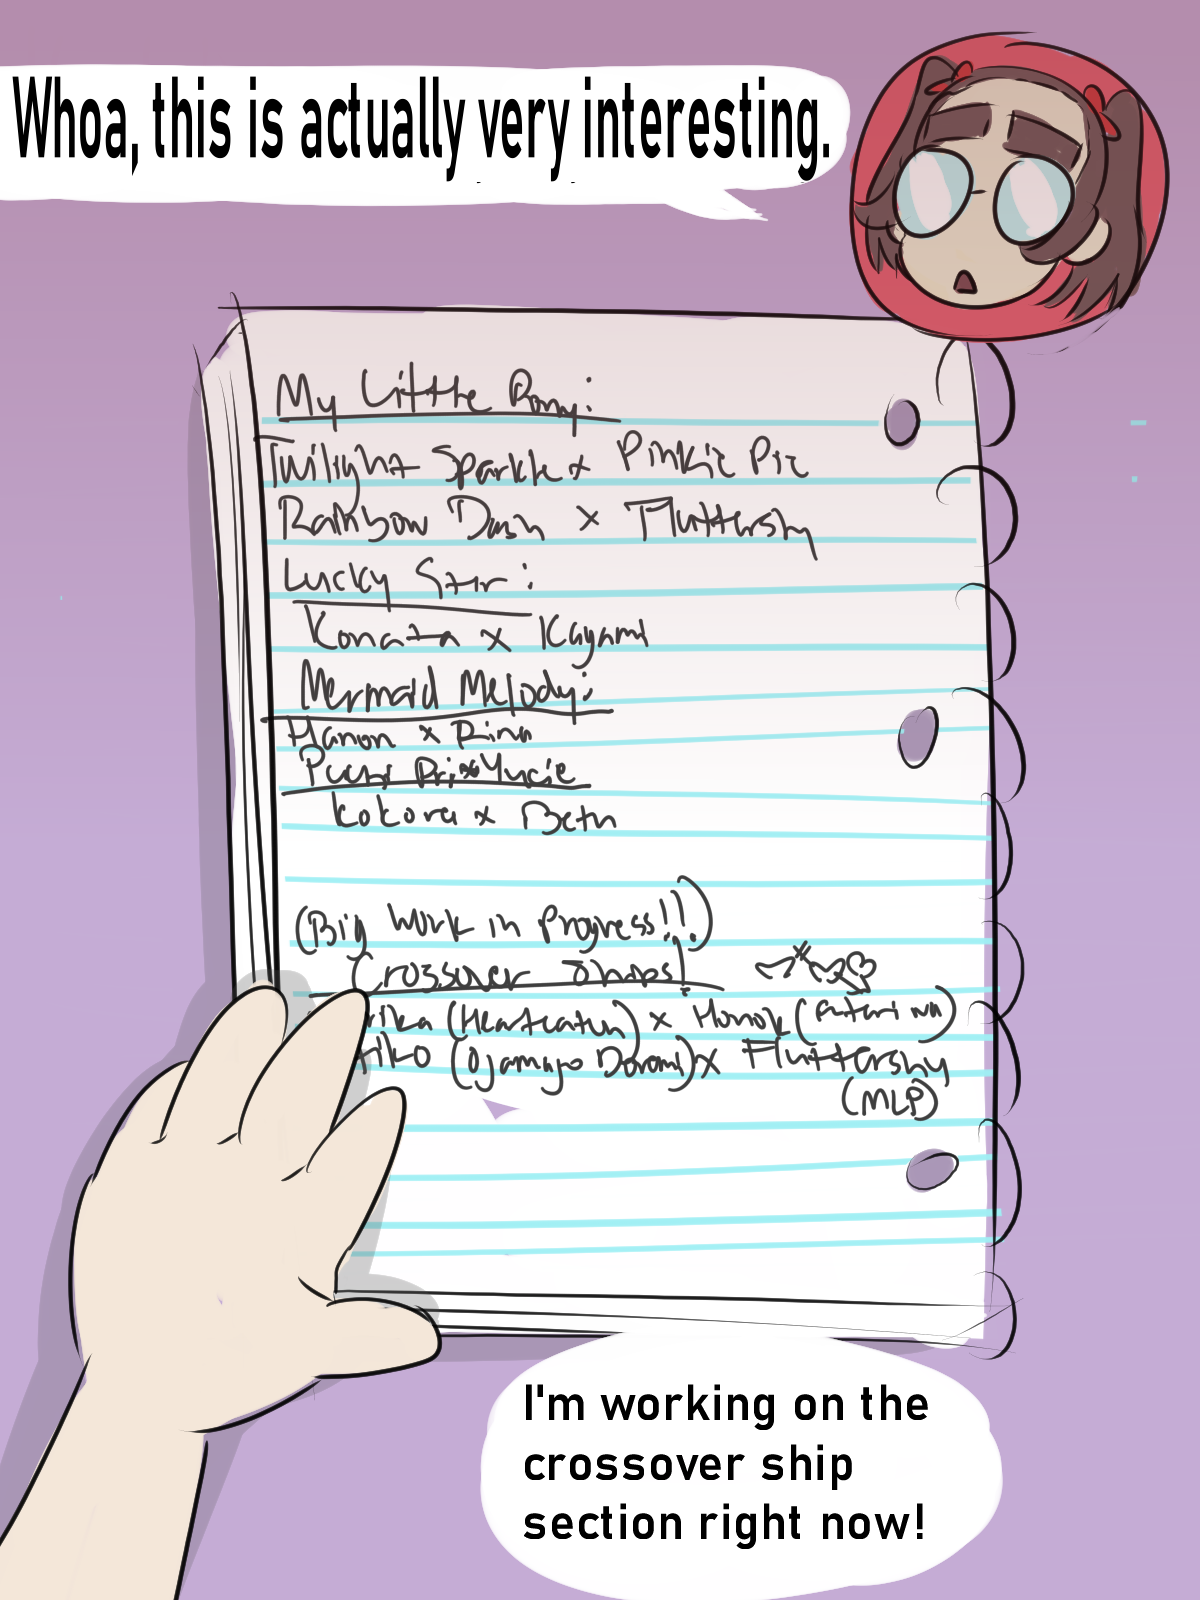 Whoa, this is actually very interesting.
My Little Pony:
Twilight Sparkle x Pinkie Pie
Rainbow Dash x Fluttershy
Lucky Star:
Konata x Kagami
Mermaid Melody:
Hanon x Rina
Puchi Pri x Yucie
Kokora x Beth
(Big work in Progress!!!)
Crossover Ships!
rika (Heartcatch) x Honok (Futari wa)
iko (Ojamajo Doremi) x Fluttershy
(MLP)
I'm working on the
crossover ship
section right now!